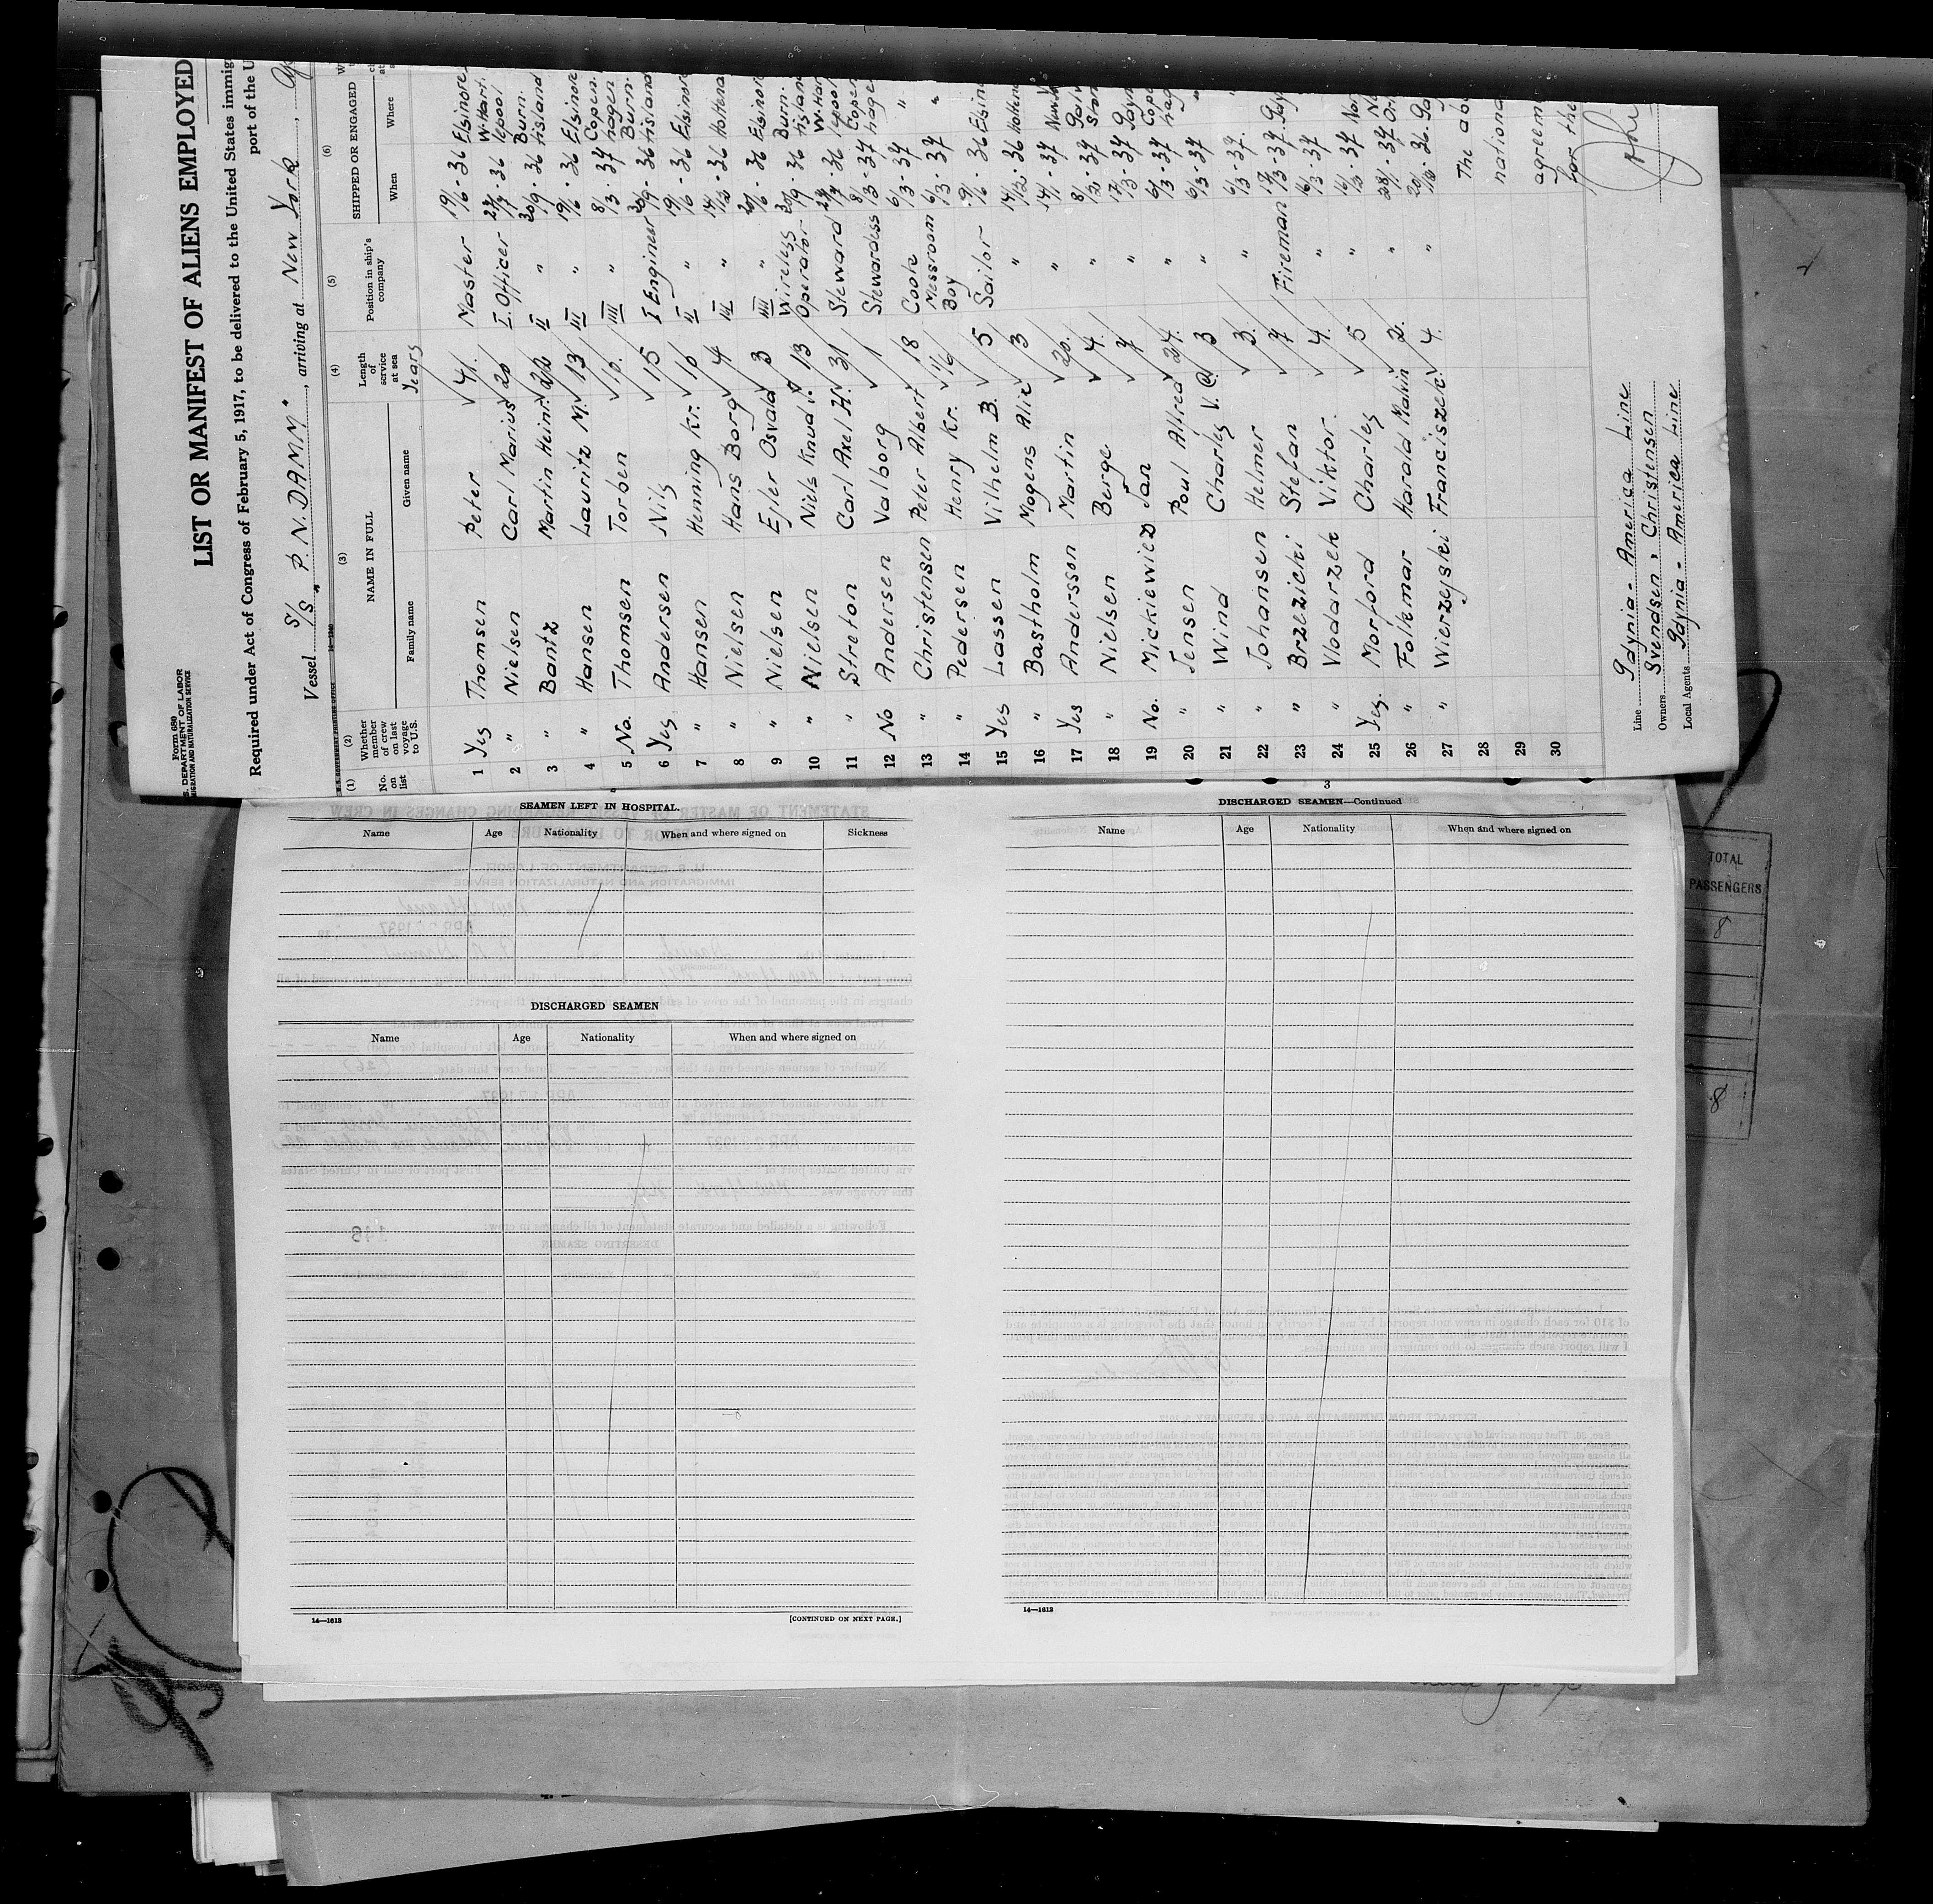 Form 680
S. DEPARTMENT OF LABOR
MIGRATION AND NATURALIZATION SERVICE
LIST OR MANIFEST OF ALIENS EMPLOYED
Required under Act of Congress of February 5, 1917, to be delivered to the United States immig
port of the U
Vessel S/S „P. N. DAMM“, arriving at New York,
(1) (2) (3) (4) (5) (6)
No. on list
Whether member of crew on last voyage to U.S.
NAME IN FULL
Family name Given name
Length of service at sea
Years
Position in ship's company
SHIPPED OR ENGAGED
When Where
1 Yes Thomsen Peter 41. Master 19/6-36 Elsinore
2 " Nielsen Carl Marius 20 I. Officer 24/7-36 W. Hartlepool
3 " Bantz Martin Heinr. 26 II " 30/9-36 Burntisland
4 " Hansen Lauritz M. 13 III " 19/6-36 Elsinore
5 No. Thomsen Torben 10. IIII " 8/3-37 Copenhagen
6 Yes Andersen Nils 15 I Engineer 30/9-36 Burntisland
7 " Hansen Henning Kr. 10 II " 19/6-36 Elsinore
8 " Nielsen Hans Borg 4 III " 14/12-36 Holtena
9 " Nielsen Ejler Osvald 3 IIII " 20/6-36 Elsinor
10 " Nielsen Niels Knud 13 Wireless Operator 30/9-36 Burntisland
11 " Streton Carl Axel H. 31 Steward 24/7-36 W. Hartlepool
12 No Andersen Valborg 1 Stewardess 8/3-37 Copenhage
13 " Christensen Peter Albert 18 Cook 6/3-37 "
14 " Pedersen Henry Kr. Messroom Boy 6/3-37 "
15 Yes Lassen Vilhelm B. 5 Sailor 19/6-36 Elsin
16 " Bastholm Mogens Alic 3 " 14/12-36 Holtena
17 Yes Andersson Martin 20. " 14/1-37 New
18 " Nielsen Børge 4. " 8/2-37
19 No. Mickiewicz Jan 7 " 17/3-37 Gdyn
20 " Jensen Poul Alfred 24. " 6/3-37 Cope hag
21 " Wind Charley V. C. 3 " 6/3-37 "
22 " Johansen Helmer 3. " 6/3-37. "
23 " Brzezicki Stefan 7 Fireman 17/3-37. Gdy
24 " Vlodarzek Viktor. 4. " 16/3-37
25 Yes. Morford Charley 5 " 37
26 " Folkmar Harald Malvin 2. " 28/1-37
27 " Wierzeyski Franciszek. 4. " 36
28
29
30
The abo
nationa
agreem
for the
Line Gdynia - America Line
Owners Svendsen & Christensen
Local Agents Gdynia - America Line
SEAMEN LEFT IN HOSPITAL.
Name Age Nationality When and where signed on Sickness
DISCHARGED SEAMEN
Name Age Nationality When and where signed on
14—1613 [CONTINUED ON NEXT PAGE.]
3
DISCHARGED SEAMEN—Continued
Name Age Nationality When and where signed on
14—1613
TOTAL
PASSENGERS
8
8